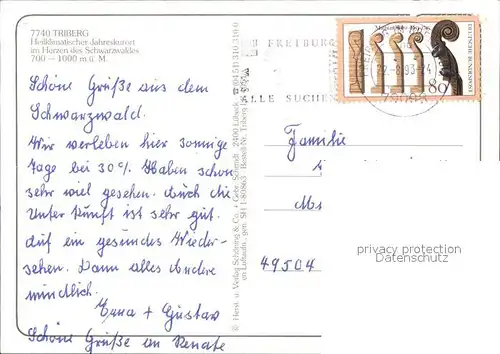 7740 TRIBERG
Heilklimatischer Jahreskurort
im Herzen des Schwarzwaldes
700 – 1000 m ü. M.
Schöne Grüße aus dem
Schwarzwald.
Wir verleben hier sonnige
Tage bei 30°. Haben schon
sehr viel gesehen. Auch die
Unterkunft ist sehr gut.
Auf ein gesundes Wieder-
sehen. Dann alles Andere
mündlich.
Erna + Gustav
Schöne Grüße an Renate
© Herst. u. Verlag Schöning & Co. + Gebr. Schmidt, 2400 Lübeck
FREIBURG
ALLE SUCHEN
22.-8.93-24
DEUTSCHE BUNDESPOST
80
Familie
49504
privacy protection
Datenschutz